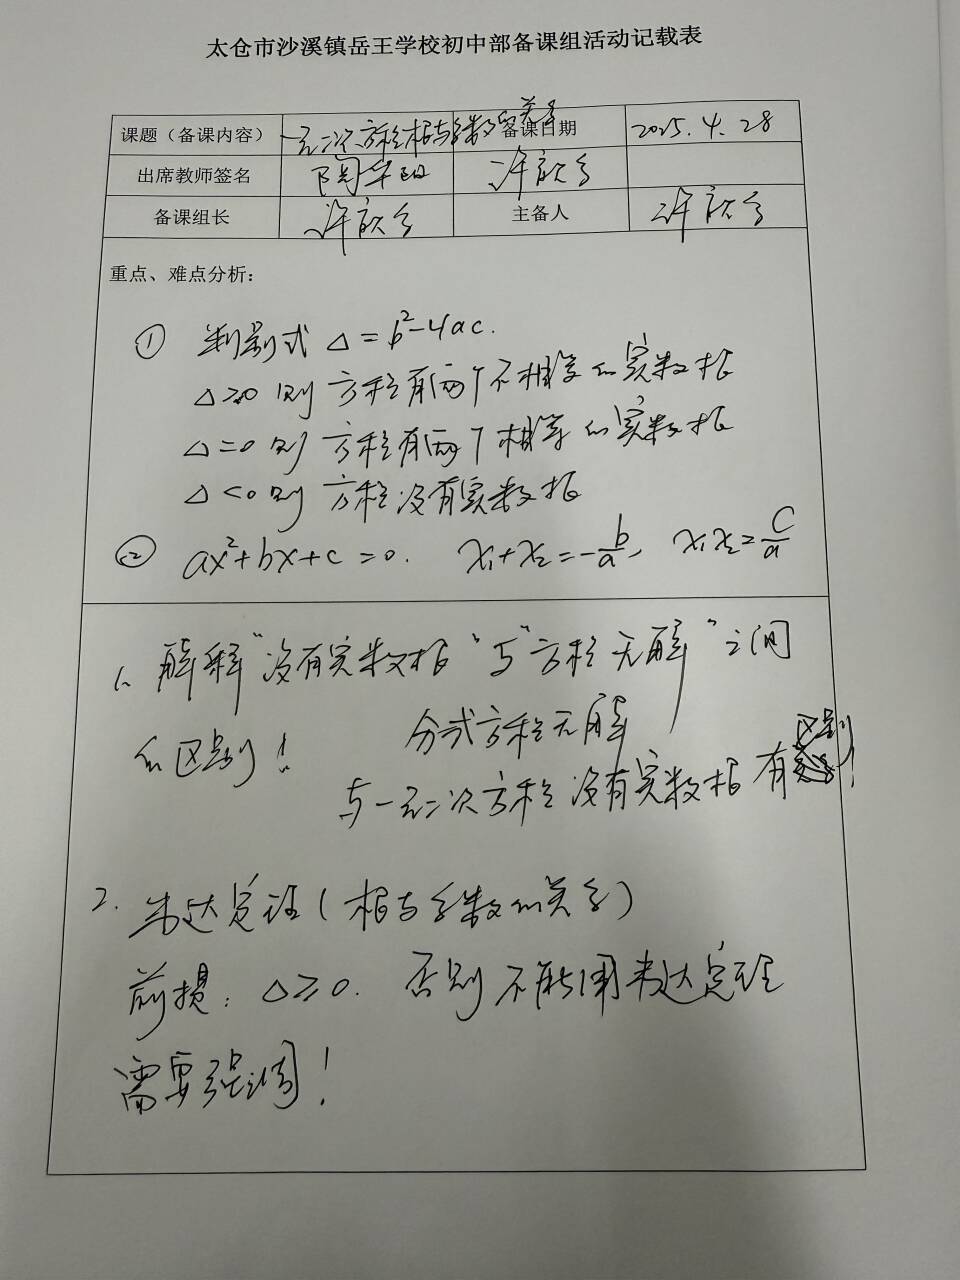 太仓市沙溪镇岳王学校初中部备课组活动记载表
课题（备课内容） 一元二次方程根与系数的关系 备课日期 2025.4.28
出席教师签名 陶华 许欣
备课组长 许欣 主备人 许欣
重点、难点分析：
① 判别式 Δ=b²-4ac.
Δ>0 则 方程有两个不相等的实数根
Δ=0 则 方程有两个相等的实数根
Δ<0 则 方程没有实数根
② ax²+bx+c=0. x₁+x₂=-b/a, x₁x₂=c/a
1、解释"没有实数根"与"方程无解"之间
的区别！ 分式方程无解
与一元二次方程没有实数根有区别！
2. 韦达定理（根与系数的关系）
前提：Δ≥0. 否则不能用韦达定理
需要强调！